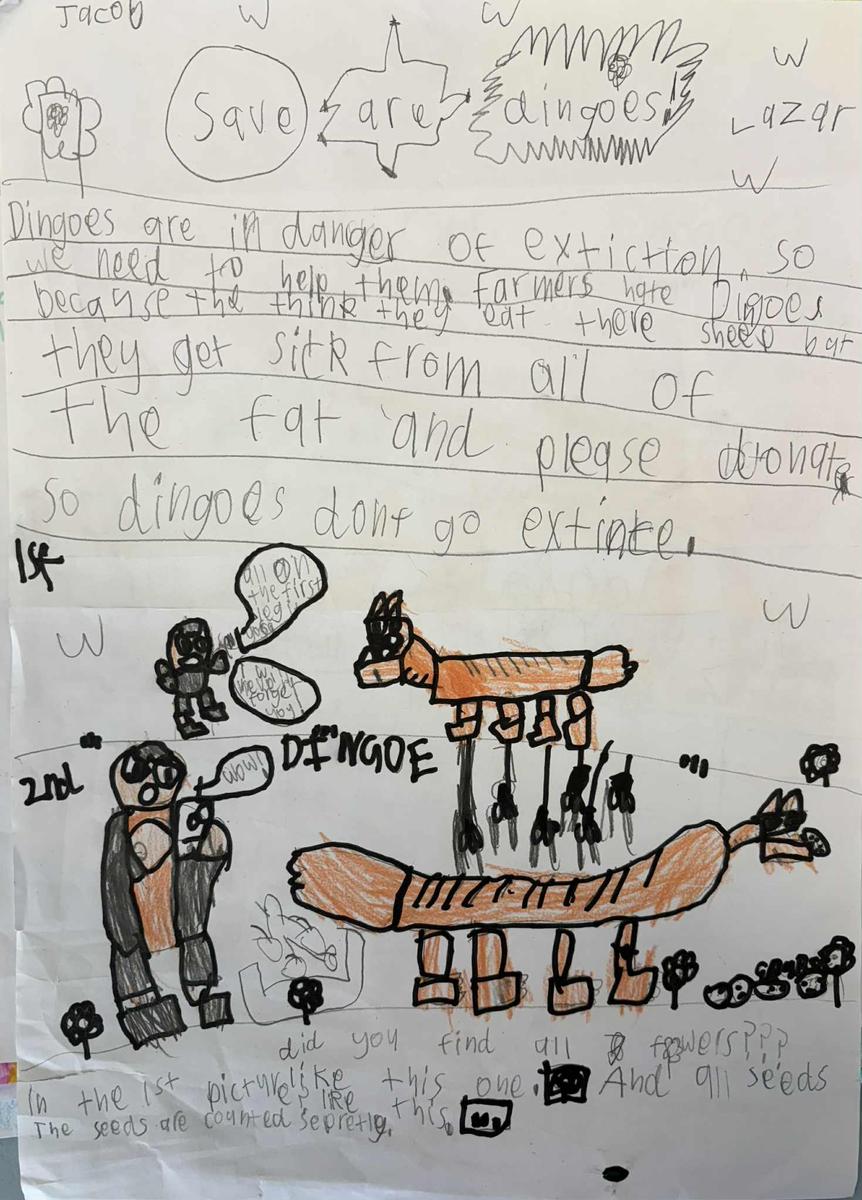 Jacob W W
W
Save are dingoes!
Lazar
W
Dingoes are in danger of extiction, so
we need to help them. farmers hate Dingoes
because the think they eat there sheep but
they get sick from all of
the fat and please donate
so dingoes dont go extinte.
1st
all on
the first
leg
W
W
forget
2nd
wow!
DINGOE
did you find all flowers???
In the 1st picture like this one. And all seeds
like this.
The seeds are counted sepretly.